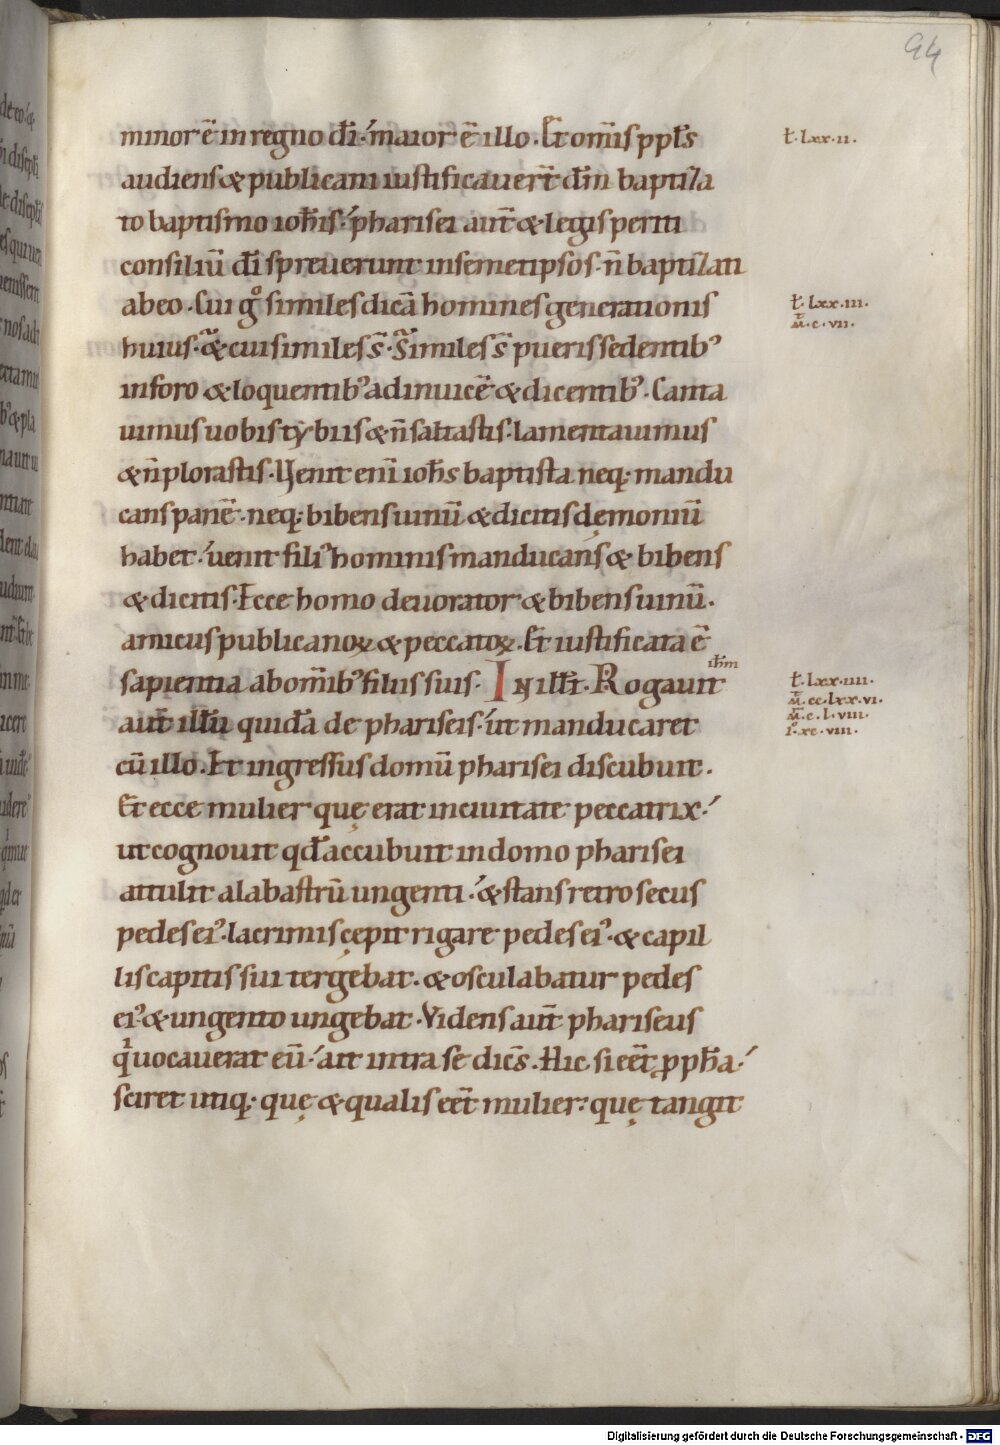 94
minor ē in regno dī· maior ē illo. Et om̄is ppl̄s
audiens & publicani iustificaver̄t dm̄ baptiza
to baptismo ioh̄is· pharisei aut̄ & legis periti
consiliū dī spreuerunt in semetipsos· n̄ baptizati
ab eo. Cui gº similes dicā homines generationis
huius· & cui similes s̄· Similes s̄ pueris sedentibꝰ
in foro & loquentibꝰ ad inuicē & dicentibꝰ. Canta
uimus uobis tybiis & n̄ saltastis· lamentauimus
& n̄ plorastis. Uenit eni̅ ioh̄s baptista neq; mandu
cans panē· neq; bibens uinū & dicitis dęmoniū
habet· uenit filiꝰ hominis manducans & bibens
& dicitis· Ecce homo deuorator & bibens uinū.
amicus publicanoꝝ & peccatoꝝ. Et iustificata ē
sapientia ab om̄ibꝰ filiis suis. In ill̄t. Rogauit ih̄m
aut̄ illū quidā de phariseis· ut manducaret
cū illo. Et ingressus domū pharisei discubuit.
Et ecce mulier quę erat in ciuitate peccatrix·
ut cognouit qd̄ accubuit in domo pharisei
attulit alabastrū ungenti· & stans retro secus
pedes eiꝰ· lacrimis cępit rigare pedes eiꝰ· & capil
lis capitis sui tergebat. & osculabatur pedes
eiꝰ & ungento ungebat. Videns aut̄ phariseus
qͥ uocauerat eū· ait intra se dicēs. Hic si eēt ꝓph̄a·
sciret utiq; quę & qualis eēt mulier· quę tangit
t̄. lxx.ii.
t̄. lxx.iii.
m̄. c.vii.
t̄. lxx.iiii.
m̄. cc.lxx.vi.
m̄. c.l.viii.
iº. xc.viii.
Digitalisierung gefördert durch die Deutsche Forschungsgemeinschaft - DFG